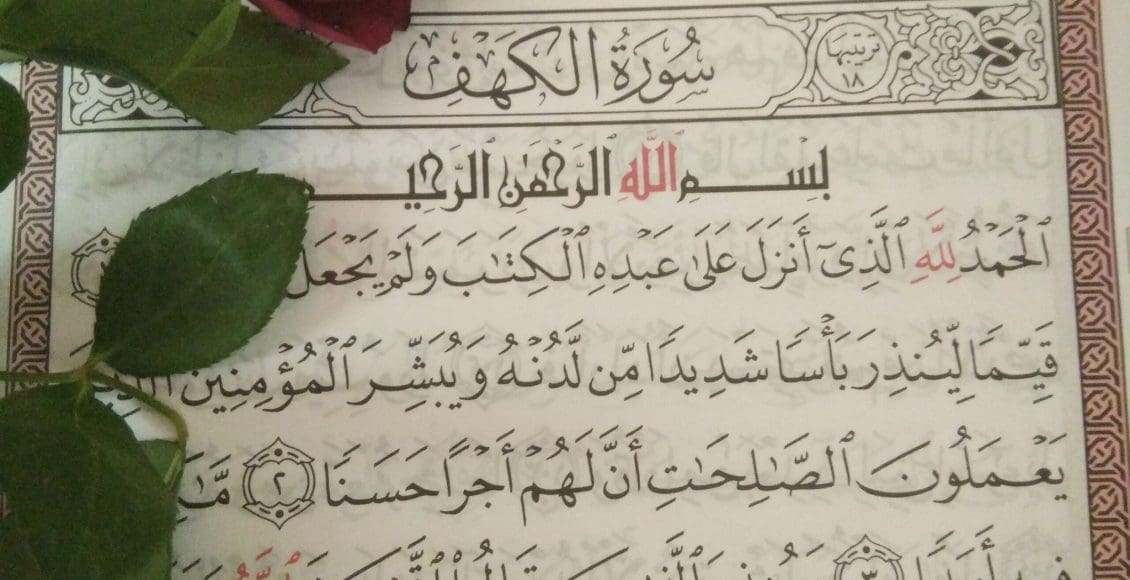 سُورَةُ الكَهْفِ
ترتيبها
١٨
بِسْمِ اللَّهِ الرَّحْمَٰنِ الرَّحِيمِ
ٱلْحَمْدُ لِلَّهِ ٱلَّذِىٓ أَنزَلَ عَلَىٰ عَبْدِهِ ٱلْكِتَٰبَ وَلَمْ يَجْعَل
قَيِّمًا لِّيُنذِرَ بَأْسًا شَدِيدًا مِّن لَّدُنْهُ وَيُبَشِّرَ ٱلْمُؤْمِنِينَ
يَعْمَلُونَ ٱلصَّٰلِحَٰتِ أَنَّ لَهُمْ أَجْرًا حَسَنًا ٢